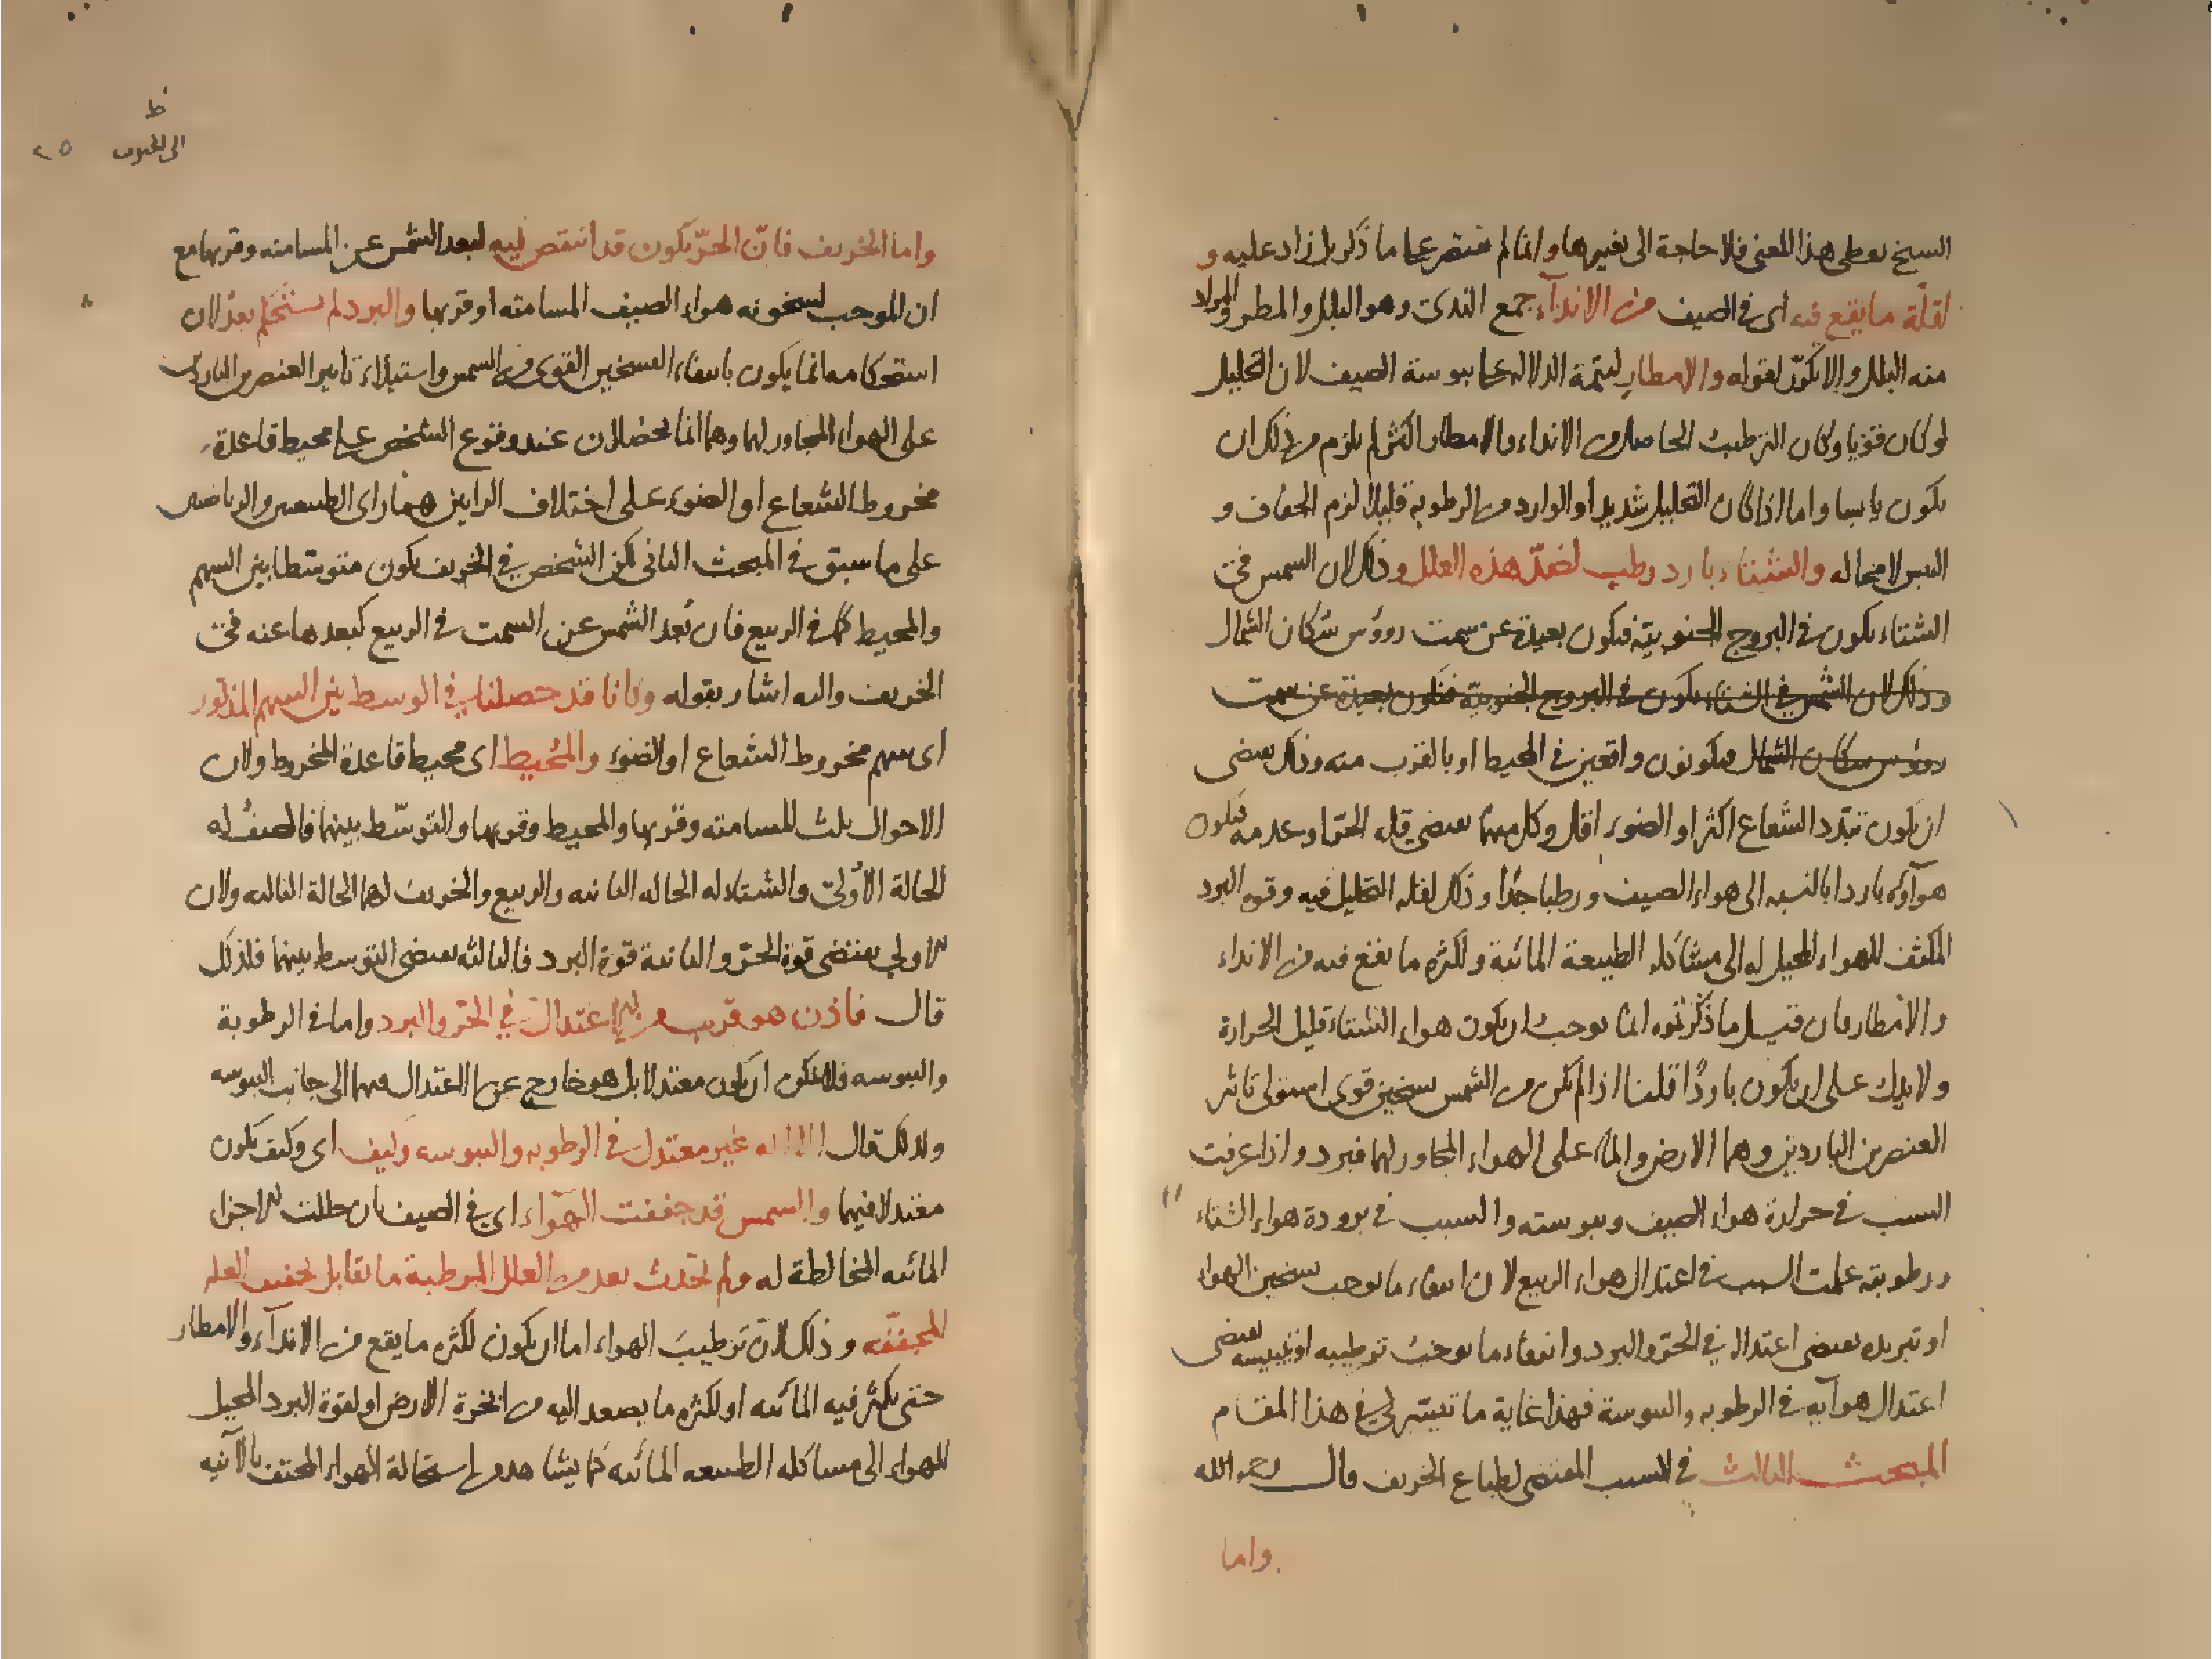 الشيخ يعطى هذا المعنى فلا حاجة الى تغييرها وانما لم نقتصر على ما ذكر بل زاد عليه و
لقلة ما يقع فيه اى فى الصيف من الاندآء جمع الندى وهو البلل والمطر والمراد
منه البلل والا يكون لقوله والامطار لتتمة الدلالة على يبوسة الصيف لان التحليل
لو كان قويا وكان الترطيب الحاصل من الانداء والامطار اكثر لم يلزم من ذلك ان
يكون يابسا واما اذا كان التحليل شديدا والوارد من الرطوبة قليلا لزم الجفاف و
اليبس لا محالة والشتاء بارد رطب لضد هذه العلل وذلك لان الشمس فى
الشتاء يكون فى البروج الجنوبية فيكون بعيدة عن سمت رووس سكان الشمال
وذلك لان الشمس فى الشتاء يكون فى البروج الجنوبية فتكون بعيدة عن سمت
رووس سكان الشمال فيكونون واقعين فى المحيط او بالقرب منه وذلك يقتضى
ان يكون تبدد الشعاع اكثر او الضوء اقل وكل منهما يقتضى قلة الحر او عدمه فيكون
هوآؤه باردا بالنسبة الى هواء الصيف ورطبا جدا وذلك لقلة التحليل فيه وقوة البرد
المكثف للهواء المحيل له الى مشاكلة الطبيعة المائية ولكثرة ما يقع فيه من الانداء
والامطار فان قيل ما ذكرتموه انما يوجب ان يكون هواء الشتاء قليل الحرارة
ولا يدل على ان يكون باردًا قلنا اذا لم يكن من الشمس تسخين قوى استولى تاثير
العنصرين الباردين وهما الارض والماء على الهواء المجاور لهما فبرد واذا عرفت
السبب فى حرارة هواء الصيف ويبوسته والسبب فى برودة هواء الشتاء
ورطوبته علمت السبب فى اعتدال هواء الربيع لان انتفاء ما يوجب تسخين الهواء
او تبريده يقتضى اعتداله فى الحر والبرد وانتفاء ما يوجب ترطيبه او تيبيسه يقتضى
اعتدال هوآيه فى الرطوبه واليبوسة فهذا غاية ما تيسر لى فى هذا المقام
المبحث الثالث فى السبب المقتضى لطباع الخريف قال رحمه الله
واما
ط
الى الجنوب ٢٥
واما الخريف فان الحرّ يكون قد انتقص فيه لبعد الشمس عن المسامته وقربها مع
ان الموجب لسخونه هواء الصيف المسامته او قربها والبرد لم يستحكم بعد لان
استحكامه انما يكون بانتفاء التسخين القوى من الشمس واستيلاء تاثير العنصرين الباردين
على الهواء المجاور لهما وهما انما يحصلان عند وقوع الشخص على محيط قاعدة
مخروط الشعاع او الضوء على اختلاف الرايين هما راى الطبيعيين والرياضيين
على ما سبق فى المبحث الثانى لكن الشخص فى الخريف يكون متوسطا بين السهم
والمحيط كما فى الربيع فان بُعد الشمس عن السمت فى الربيع كبعدها عنه فى
الخريف واليه اشار بقوله وكانا قد حصلنا فى الوسط بين السهم المذكور
اى سهم مخروط الشعاع او الضوء والمُحيط اى محيط قاعدة المخروط ولان
الاحوال ثلث المسامته وقربها والمحيط وقربها والتوسّط بينهما فالصيف له
الحالة الاولى والشتاء له الحالة الثانيه والربيع والخريف لهما الحالة الثالثه ولان
الاولى يقتضى قوة الحرّ والثانية قوة البرد فالثالثه يقتضى التوسط بينهما فلذلك
قال فاذن هو قريب من الاعتدال فى الحر والبرد واما فى الرطوبة
واليبوسه فلا يمكن ان يكون معتدلا بل هو خارج عن الاعتدال فيهما الى جانب اليبوسه
ولذلك قال الا انه غير معتدل فى الرطوبه واليبوسه وكيف اى وكيف يكون
معتدلا فيهما والشمس قد جففت الهوآء اى فى الصيف بان حللت الاجزاء
المائيه المخالطة له ولم تحدث بعد من العلل المرطبة ما تقابل تجفيف العلة
المجففه وذلك لان ترطيبَ الهواء اما ان يكون لكثرة ما يقع من الاندآء والامطار
حتى يكثر فيه المائيه او لكثرة ما يصعد اليه من ابخرة الارض او لقوة البرد المحيل
للهواء الى مشاكلة الطبيعه المائيه كما يشاهد من استحالة الهواء المحتف بالآنيه